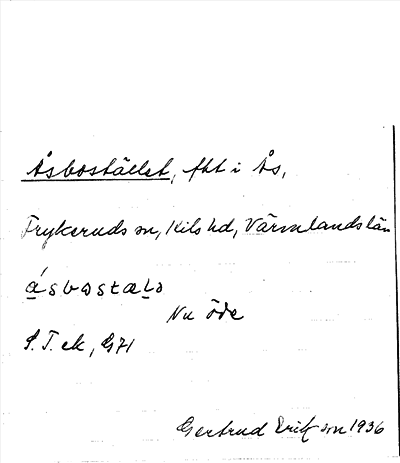 Åsbostället, fht i Ås,
Frykeruds sn, Kils hd, Värmlands län
åsbostælə
Nu öde
S. T. ek, G71
Gertrud Eriksson 1936